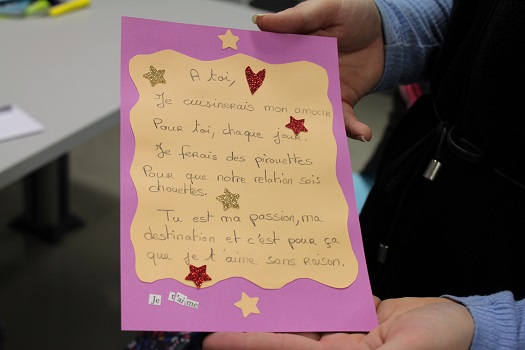 A toi,
Je cuisinerais mon amour
Pour toi, chaque jour.
Je ferais des pirouettes
Pour que notre relation sois
chouettes.
Tu est ma passion, ma
destination et c'est pour ça
que je t'aime sans raison.
Je t'aime